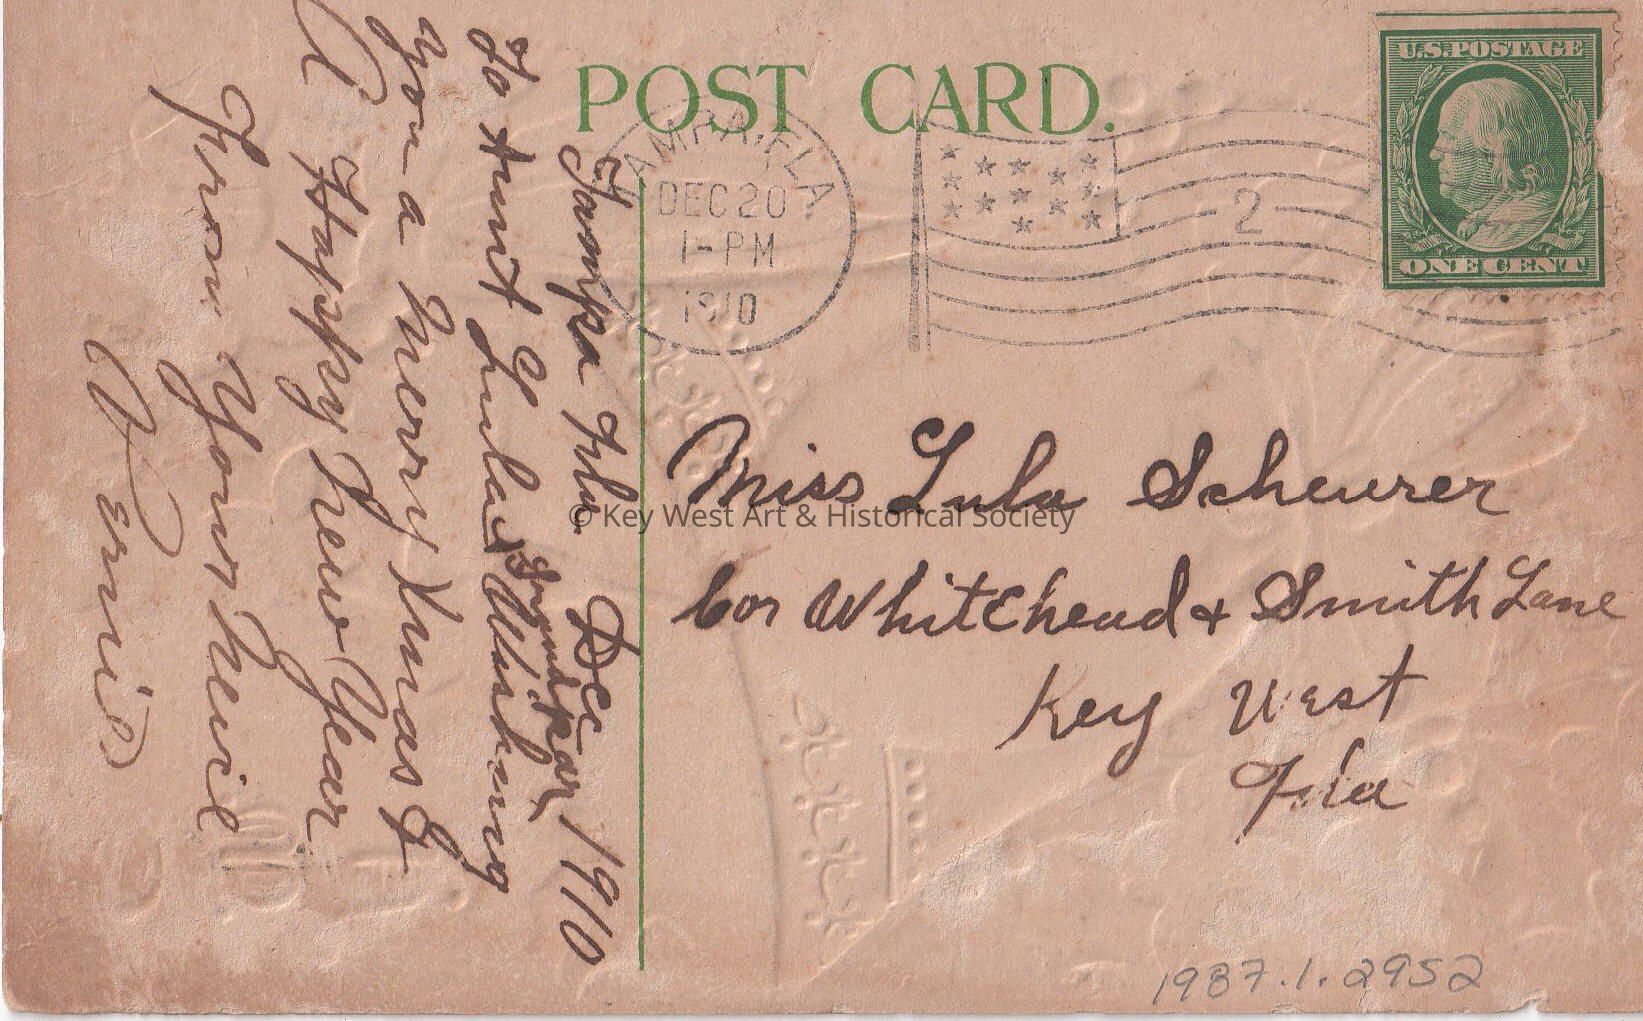 POST CARD.
U.S. POSTAGE
ONE CENT
TAMPA, FLA.
DEC 20
1-PM
1910
2
Tampa Fla. Dec 1910
To Aunt Lula & Grandpar Wishing
You a Merry Xmas &
A Happy New Year
From Your
Vernie
Miss Lula Scheurer
Cor Whitehead & Smith Lane
Key West
Fla
© Key West Art & Historical Society
1987.1.2952